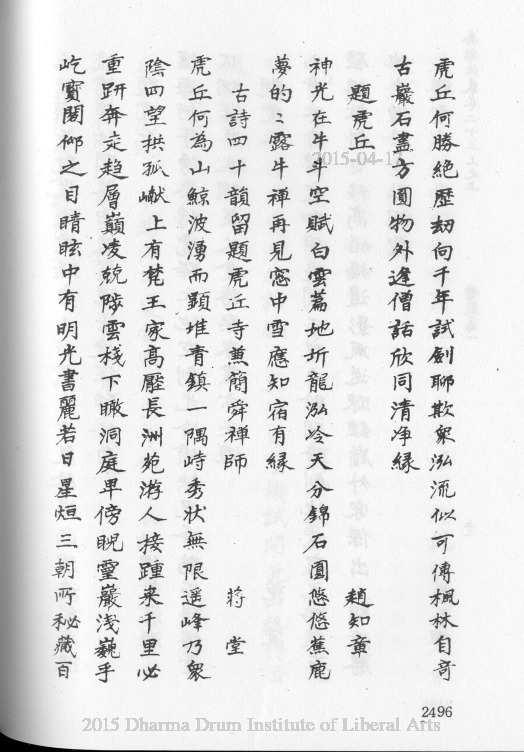 虎丘何勝絕歷刼向千年試劍聊欺衆泓流似可傳楓林自奇
古巖石盡方圓物外逢僧話欣同清净緣
題虎丘 趙知章
神光在牛斗空賦白雲篇地坼龍泓冷天分錦石圓悠悠蕉鹿
夢的〻露牛禪再見窓中雪應知宿有緣
古詩四十韻留題虎丘寺蕉簡舜禪師 蔣堂
虎丘何為山鯨波湧而顯堆青鎮一隅峙秀狀無限遥峰乃衆
陰四望拱孤巘上有梵王家高壓長洲苑游人接踵来千里必
重趼奔走趋層巔凌兢陟雲棧下瞰洞庭卑傍睨靈巖淺巍乎
屹寶閣仰之目睛眩中有明光書麗若日星烜三朝所秘藏百
2496
2015-04-17
2015 Dharma Drum Institute of Liberal Arts